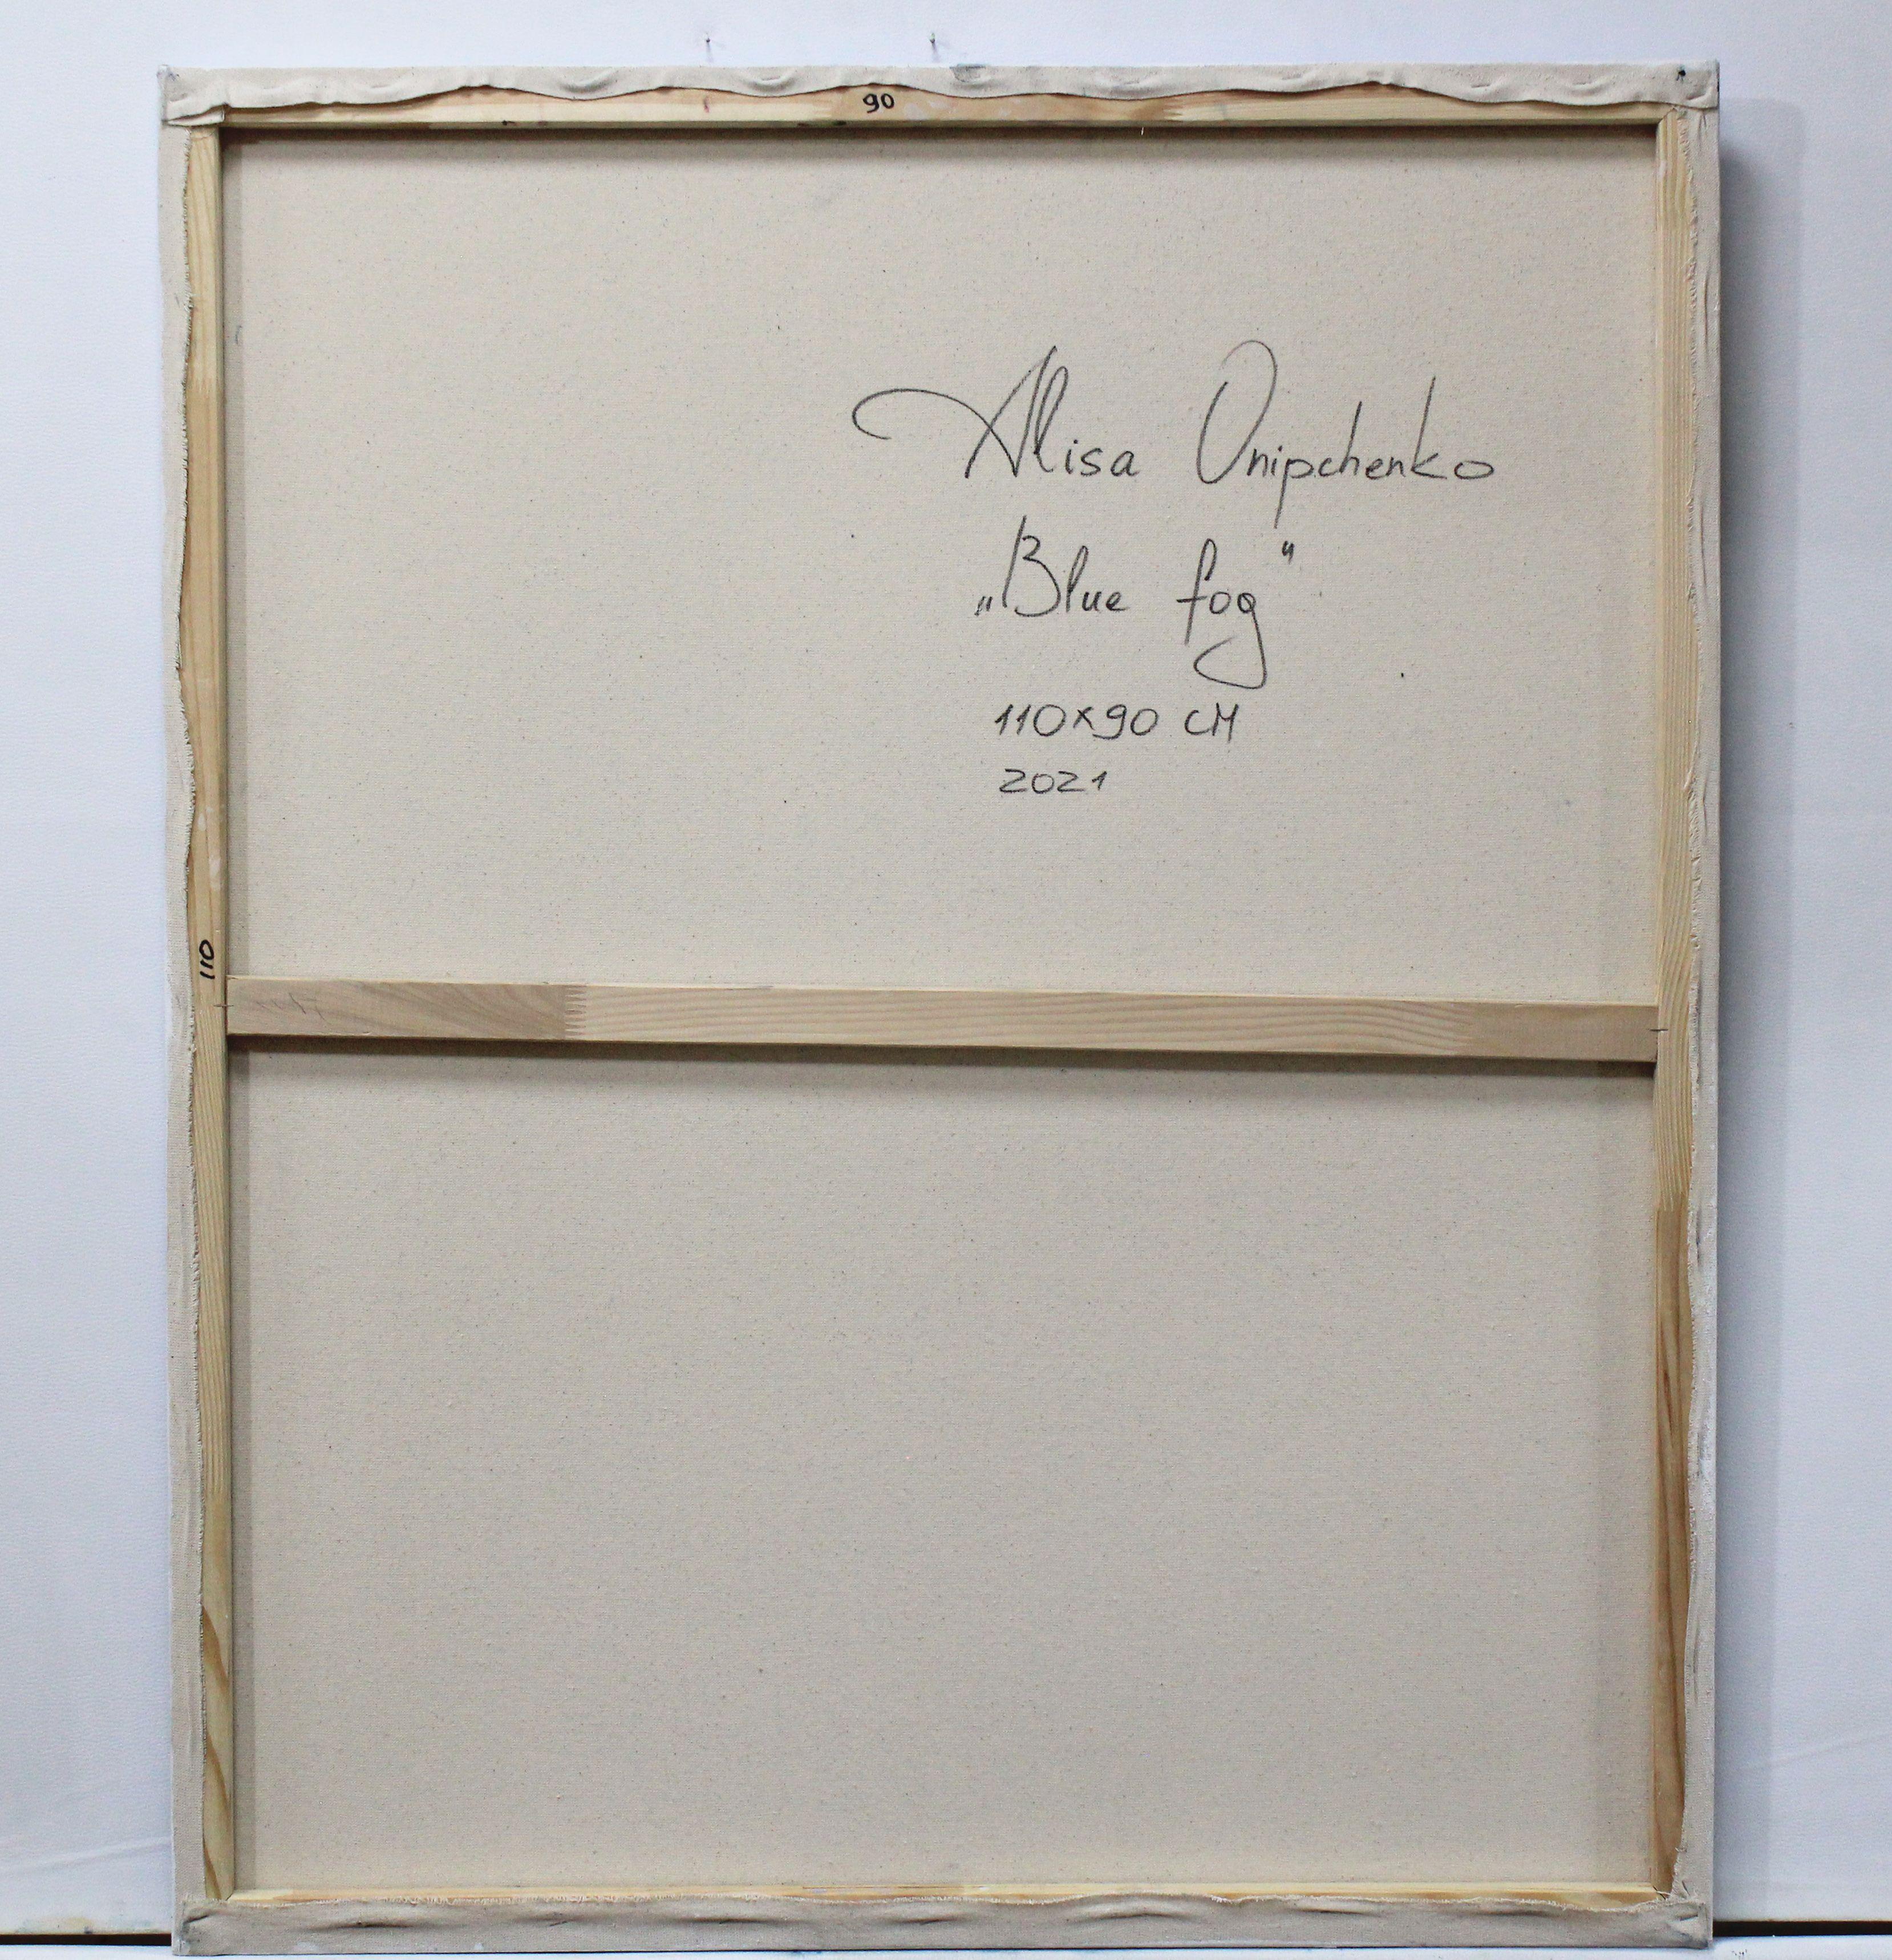 90
Alisa Onipchenko
„Blue fog"
110x90 CM
2021
110